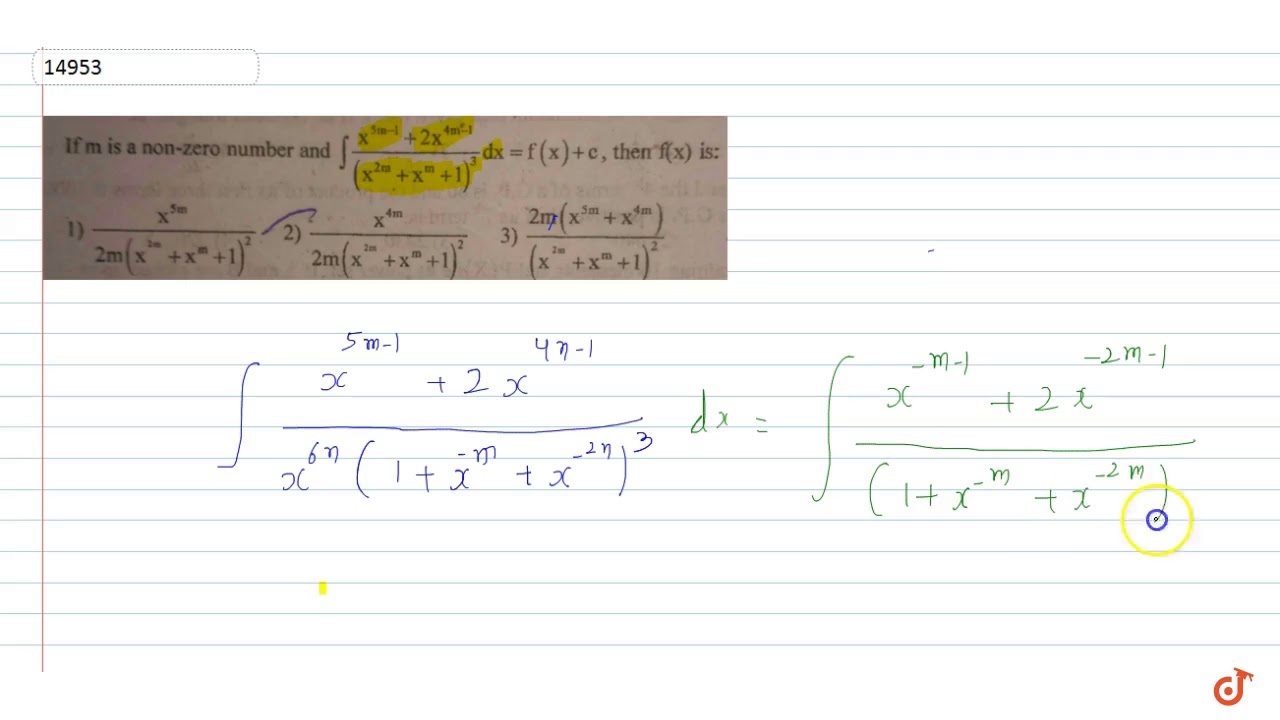 14953
If m is a non-zero number and ∫ (x^{5m-1} + 2x^{4m-1}) / (x^{2m} + x^m + 1)^3 dx = f(x) + c, then f(x) is:
1) x^{5m} / 2m(x^{2m} + x^m + 1)^2 2) x^{4m} / 2m(x^{2m} + x^m + 1)^2 3) 2m(x^{5m} + x^{4m}) / (x^{2m} + x^m + 1)^2
∫ (x^{5m-1} + 2x^{4m-1}) / x^{6m}(1 + x^{-m} + x^{-2m})^3 dx = ∫ (x^{-m-1} + 2x^{-2m-1}) / (1 + x^{-m} + x^{-2m})